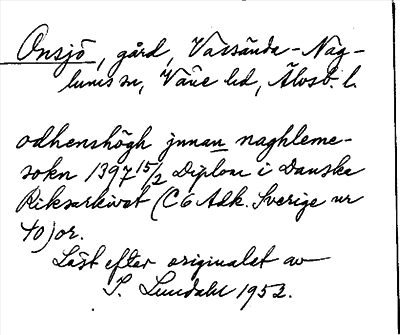 Onsjö, gård, Vassända-Nag-
lums sn, Väne hd, Älvsb. l.
odhenshögh jnnan naghleme-
sokn 1397 15/2 Diplom i Danska
Riksarkivet (C6 Adk. Sverige nr
40) or.
Läst efter originalet av
S. Lundahl 1952.